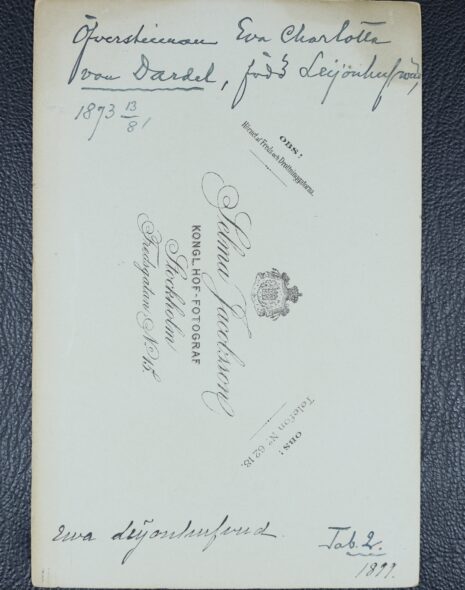 Öfverstinnan Eva Charlotta
von Dardel, född Leijonhufvud,
1873 13/8
OBS!
Hörnet af Freds och Drottninggatorna.
Selma Jacobsson
KONGL. HOF-FOTOGRAF
Stockholm
Fredsgatan No 15.
OBS!
Telefon No 62 18.
Ewa Leijonhufvud.
Tab. 2.
1899.